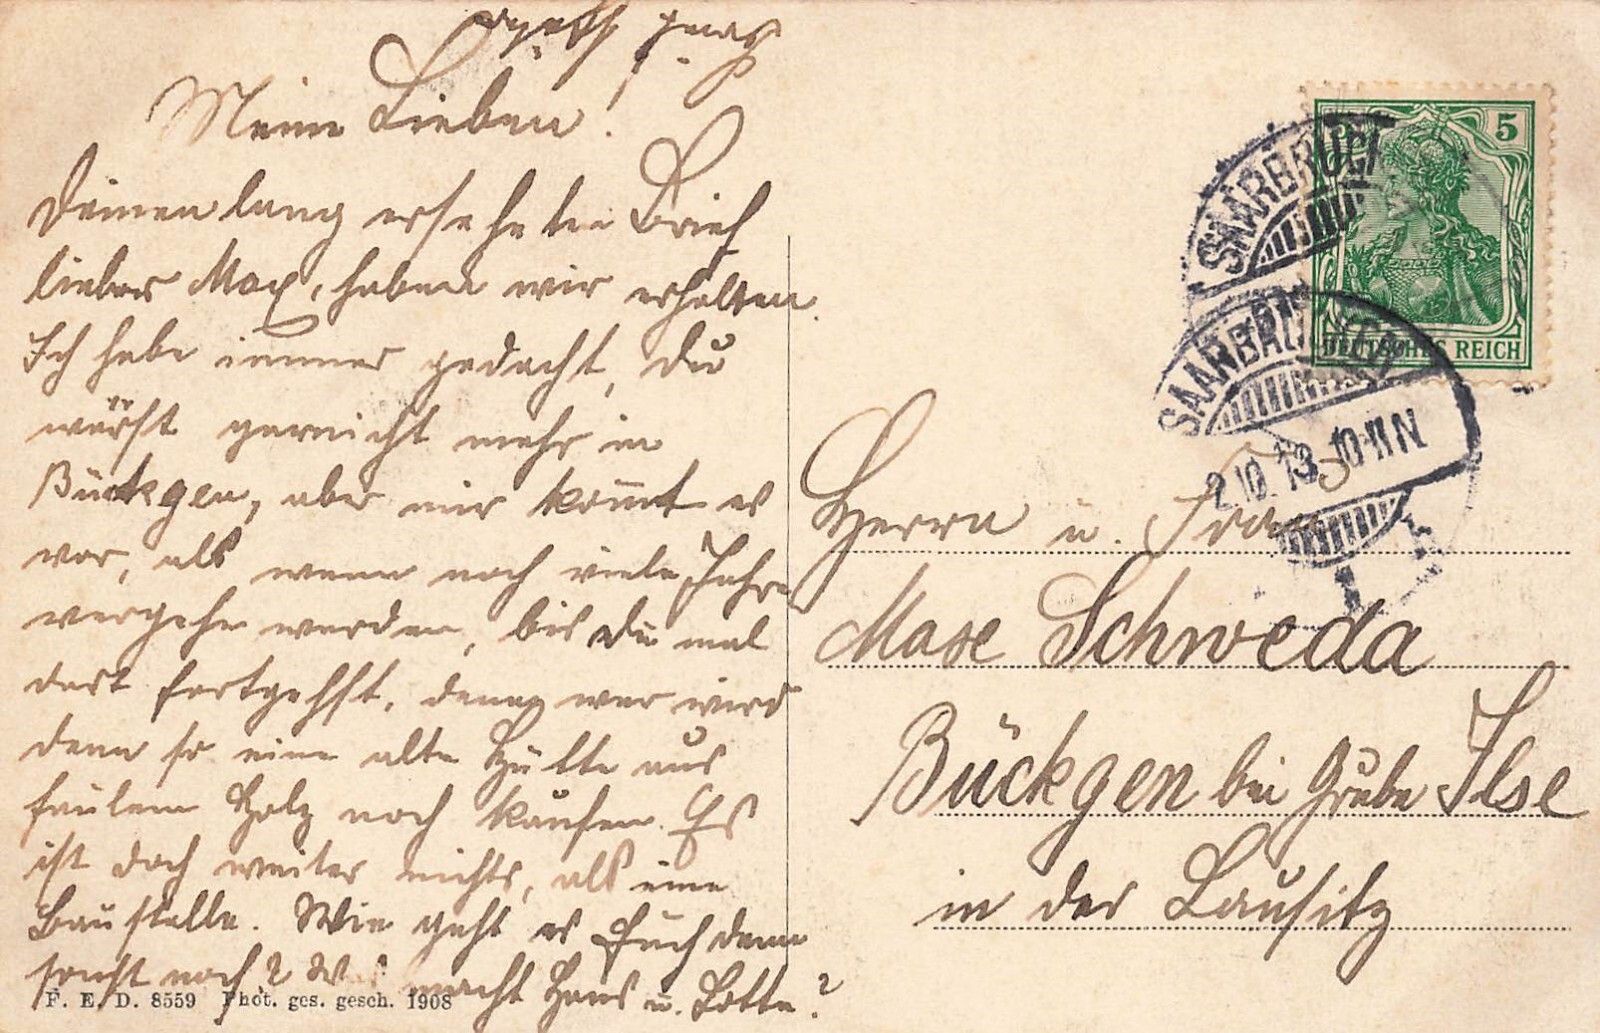 Meine Lieben!
Deinen lang ersehnten Brief
lieber Max, haben wir erhalten.
Ich habe immer gedacht, Du
wärst garnicht mehr in
Bückgen, aber mir kommt es
vor, als wenn noch viele Jahre
vergehn werden, bis Du mal
dort fortgehst, denn wer wird
denn so eine alte Hütte aus
faulem Holz noch kaufen. Es
ist doch weiter nichts, als eine
Baustelle. Wie geht es Euch denn
sonst noch? W macht Hans u. Lotte?
F. E. D. 8559 Phot. ges. gesch. 1908
5
DEUTSCHES REICH
SAARBRÜCK
SAARBRÜCKEN
2.10.13. 10-11N
1
Herrn u. Frau
Max Schweda
Bückgen bei Grube Ilse
in der Lausitz